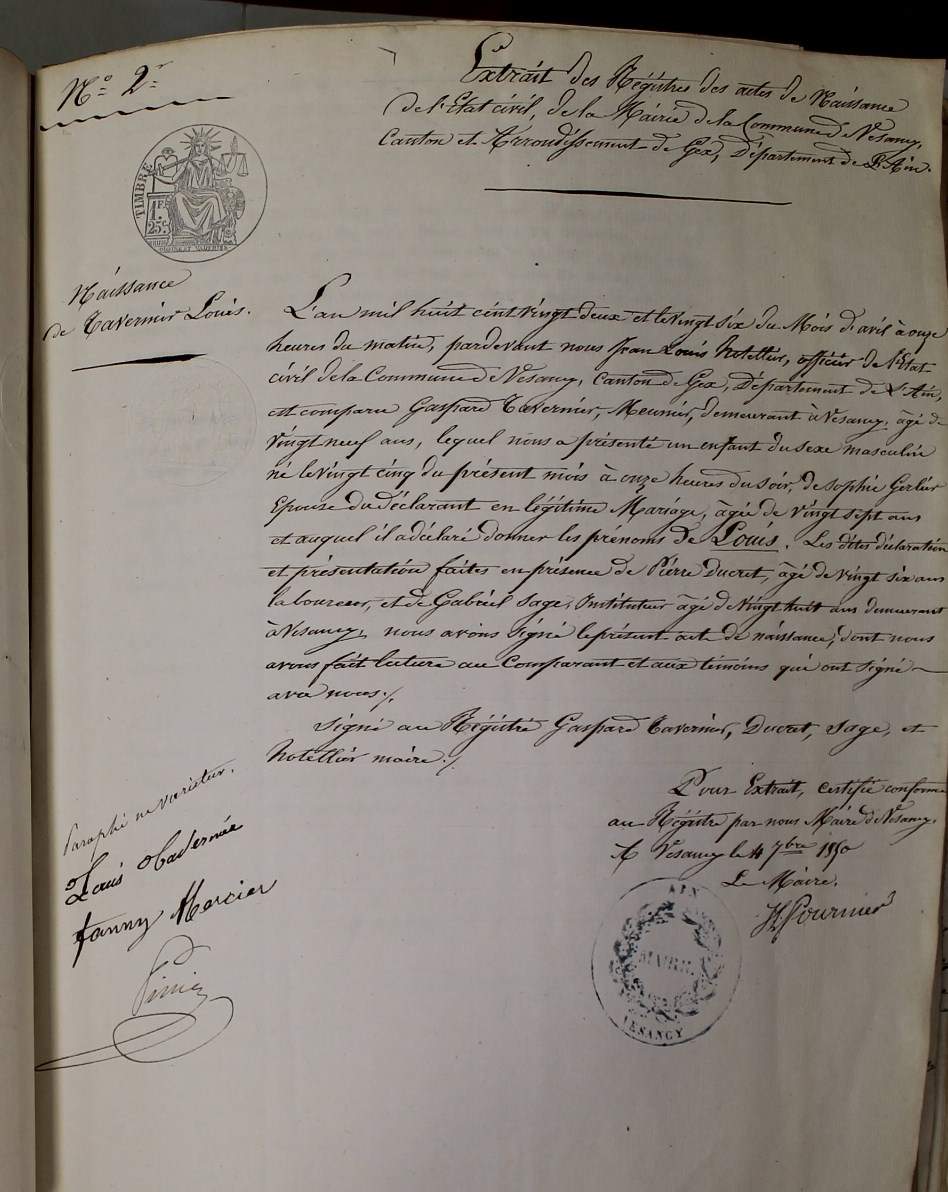 N.o 2.
Extrait des Régistres des actes de Naissance
de l'Etat civil, de la Mairie de la Commune de Vesancy,
Canton et Arrondissement de Gex, Département de L'Ain.
TIMBRE
1 F.
25 C.
Naissance
de Tavernier Louis.
L'an mil huit cent vingt deux et le vingt six du Mois d'avril à onze
heures du matin, pardevant nous Jean Louis Notellier, officier de l'Etat
civil de la Commune de Vesancy, Canton de Gex, Département de L'Ain,
est comparu Gaspard Tavernier, Meunier, demeurant à Vesancy, âgé de
vingt neuf ans, lequel nous a présenté un enfant du sexe masculin
né le vingt cinq du présent mois à onze heures du soir, de Sophie Gerlier
Epouse du déclarant en légitime Mariage, âgée de vingt sept ans
et auquel il a déclaré donner les prénoms de Louis. Les dites déclaration
et présentation faites en présence de Pierre Ducret, âgé de vingt six ans
laboureur, et de Gabriel Sage, Instituteur âgé de vingt huit ans demeurant
à Vesancy, nous avons signé le présent act de naissance, dont nous
avons fait lecture au Comparant et aux témoins qui ont signé
avec nous./.
Signé au Régistre Gaspard Tavernier, Ducret, Sage, et
Notellier maire./.
Paraphé ne varietur.
Louis Tavernier
fanny Mercier
Pour Extrait, certifié conforme
au Régistre par nous Maire de Vesancy.
A Vesancy le 4 7bre 1850
Le Maire.
Fournier
AIN
MAIRIE
VESANCY